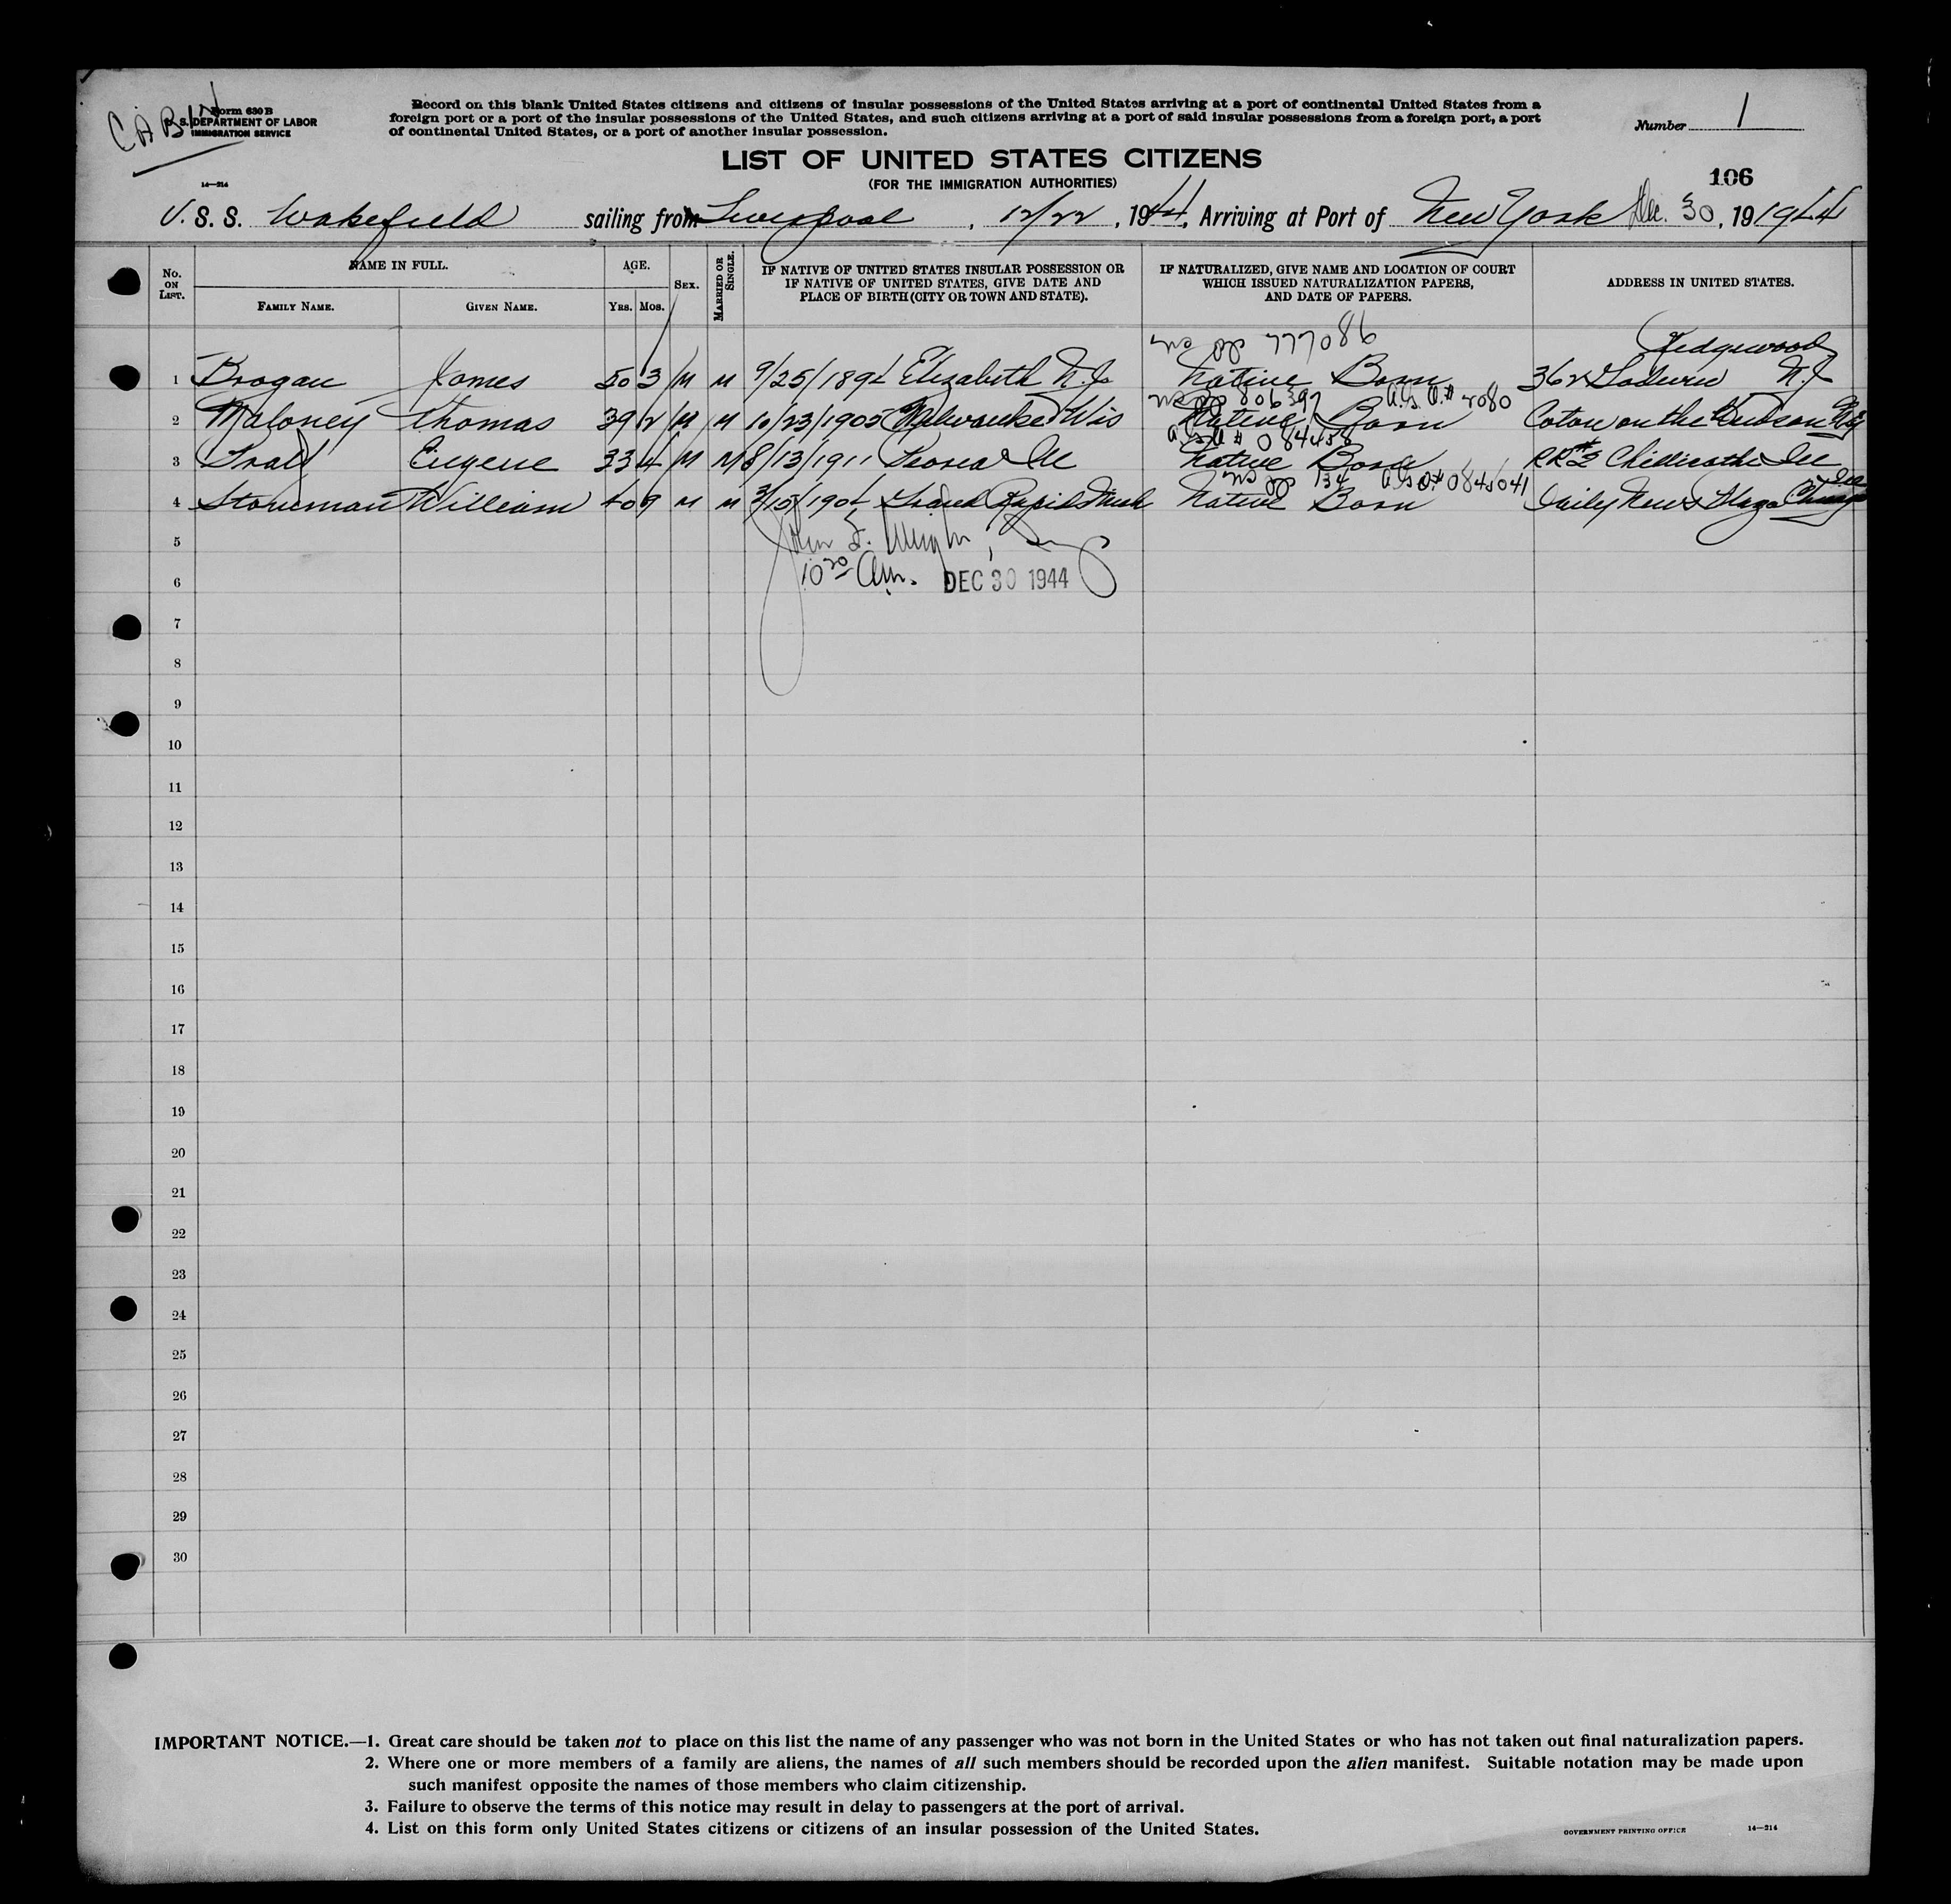 CABIN
Form 630 B
U. S. DEPARTMENT OF LABOR
IMMIGRATION SERVICE
14—214
Record on this blank United States citizens and citizens of insular possessions of the United States arriving at a port of continental United States from a
foreign port or a port of the insular possessions of the United States, and such citizens arriving at a port of said insular possessions from a foreign port, a port
of continental United States, or a port of another insular possession.
Number 1
LIST OF UNITED STATES CITIZENS
(FOR THE IMMIGRATION AUTHORITIES)
106
U. S. S. Wakefield sailing from Liverpool, 12/22, 1944, Arriving at Port of New York Dec. 30, 19 1944
No. ON LIST.
NAME IN FULL.
FAMILY NAME.
GIVEN NAME.
AGE.
YRS.
MOS.
SEX.
MARRIED OR SINGLE.
IF NATIVE OF UNITED STATES INSULAR POSSESSION OR
IF NATIVE OF UNITED STATES, GIVE DATE AND
PLACE OF BIRTH (CITY OR TOWN AND STATE).
IF NATURALIZED, GIVE NAME AND LOCATION OF COURT
WHICH ISSUED NATURALIZATION PAPERS,
AND DATE OF PAPERS.
ADDRESS IN UNITED STATES.
777086
1 Brogan James 50 3 M M 9/25/1894 Elizabeth N.J. Native Born 362 N.J.
806397 2080
2 Maloney Thomas 39 2 M M 10/23/1905 Milwaukee Wis Native Born Coton on the Hudson N.Y.
084458
3 Eugene 33 4 M M 8/13/1911 Peoria Ill Native Born RR#2 Chillicothe Ill
134
4 Stoneman William 40 9 M M 3/15/1904 Grand Rapids Mich Native Born Daily News Plaza Chicago Ill
5
6
7
8
9
10
11
12
13
14
15
16
17
18
19
20
21
22
23
24
25
26
27
28
29
30
John
10 30 am. DEC 30 1944
IMPORTANT NOTICE.—1. Great care should be taken not to place on this list the name of any passenger who was not born in the United States or who has not taken out final naturalization papers.
2. Where one or more members of a family are aliens, the names of all such members should be recorded upon the alien manifest. Suitable notation may be made upon
such manifest opposite the names of those members who claim citizenship.
3. Failure to observe the terms of this notice may result in delay to passengers at the port of arrival.
4. List on this form only United States citizens or citizens of an insular possession of the United States.
GOVERNMENT PRINTING OFFICE
14—214